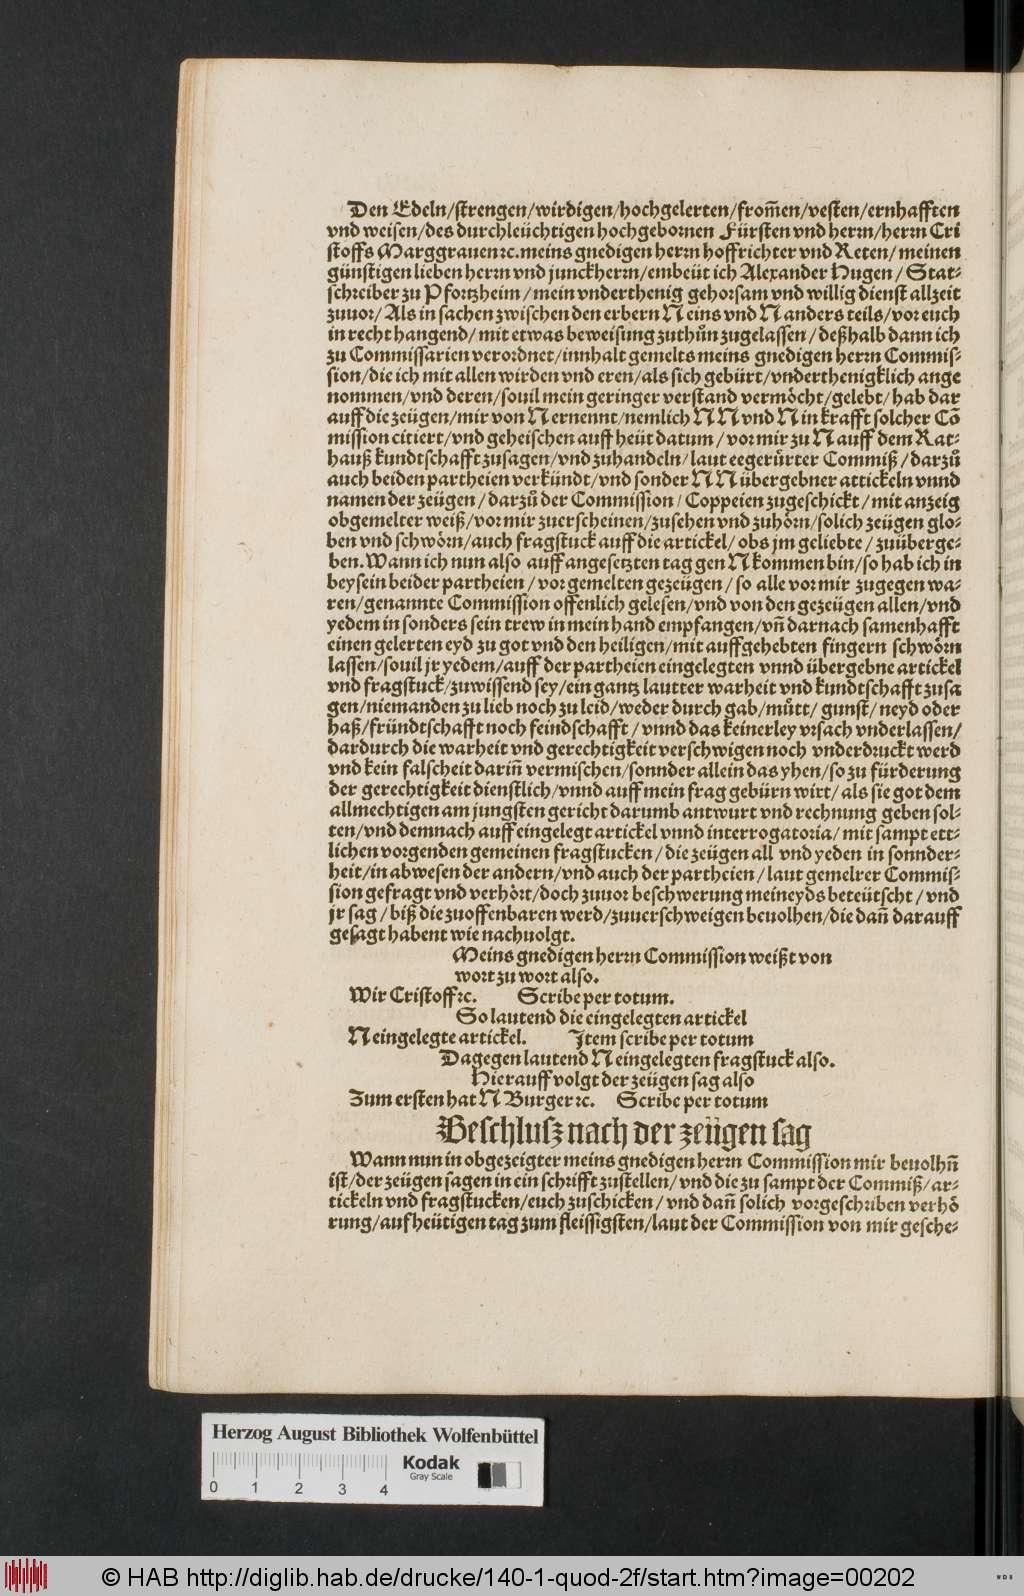 Den Edeln/strengen/wirdigen/hochgelerten/from̃en/vesten/ernhafften
vnd weisen/des durchleüchtigen hochgebornen Fürsten vnd herrn/herrn Cri
stoffs Marggrauen ꝛc. meins gnedigen herrn hoffrichter vnd Reten/meinen
günstigen lieben herrn vnd junckherrn/embeüt ich Alexander Hugen/Stat⸗
schreiber zu Pfortzheim/mein vnderthenig gehorsam vnd willig dienst allzeit
zuuor/Als in sachen zwischen den erbern N eins vnd N anders teils/vor euch
in recht hangend/mit etwas beweisung zuthůn zugelassen/deßhalb dann ich
zu Commissarien verordnet/innhalt gemelts meins gnedigen herrn Commis⸗
sion/die ich mit allen wirden vnd eren/als sich gebürt/vnderthenigklich ange
nommen/vnd deren/souil mein geringer verstand vermöcht/gelebt/hab dar
auff die zeügen/mir von N ernennt/nemlich N N vnd N in krafft solcher Cõ
mission citiert/vnd geheischen auff heüt datum/vor mir zu N auff dem Rat⸗
hauß kundtschafft zusagen/vnd zuhandeln/laut eegerürter Commiß/darzů
auch beiden partheien verkündt/vnd sonder N N übergebner attickeln vnnd
namen der zeügen/darzů der Commission/Coppeien zugeschickt/mit anzeig
obgemelter weiß/vor mir zuerscheinen/zusehen vnd zuhörn/solich zeügen glo⸗
ben vnd schwörn/auch fragstuck auff die artickel/obs jm geliebte/zuüberge⸗
ben. Wann ich nun also auff angesetzten tag gen N kommen bin/so hab ich in
beysein beider partheien/vor gemelten gezeügen/so alle vor mir zugegen wa⸗
ren/genannte Commission offenlich gelesen/vnd von den gezeügen allen/vnd
yedem in sonders sein trew in mein hand empfangen/vñ darnach samenhafft
einen gelerten eyd zu got vnd den heiligen/mit auffgehebten fingern schwörn
lassen/souil jr yedem/auff der partheien eingelegten vnnd übergebne artickel
vnd fragstuck/zuwissend sey/ein gantz lautter warheit vnd kundtschafft zusa
gen/niemanden zu lieb noch zu leid/weder durch gab/můtt/gunst/neyd oder
haß/fründtschafft noch feindschafft/vnnd das keinerley vrsach vnderlassen/
dardurch die warheit vnd gerechtigkeit verschwigen noch vnderdruckt werd
vnd kein falscheit dariñ vermischen/sonnder allein das yhen/so zu fürderung
der gerechtigkeit dienstlich/vnnd auff mein frag gebürn wirt/als sie got dem
allmechtigen am jungsten gericht darumb antwurt vnd rechnung geben sol⸗
ten/vnd demnach auff eingelegt artickel vnnd interrogatoria/mit sampt ett⸗
lichen vorgenden gemeinen fragstucken/die zeügen all vnd yeden in sonnder⸗
heit/in abwesen der andern/vnd auch der partheien/laut gemelrer Commis⸗
sion gefragt vnd verhört/doch zuuor beschwerung meineyds beteütscht/vnd
jr sag/biß die zuoffenbaren werd/zuuerschweigen beuolhen/die dañ darauff
gesagt habent wie nachuolgt.
Meins gnedigen herrn Commission weißt von
wort zu wort also.
Wir Cristoff ꝛc. Scribe per totum.
So lautend die eingelegten artickel
N eingelegte artickel. Item scribe per totum
Dagegen lautend N eingelegten fragstuck also.
Hierauff volgt der zeügen sag also
Zum ersten hat N Burger ꝛc. Scribe per totum
Beschlusz nach der zeügen sag
Wann nun in obgezeigter meins gnedigen herrn Commission mir beuolhñ
ist/der zeügen sagen in ein schrifft zustellen/vnd die zu sampt der Commiß/ar⸗
tickeln vnd fragstucken/euch zuschicken/vnd dañ solich vorgeschriben verhö
rung/auf heütigen tag zum fleissigsten/laut der Commission von mir gesche⸗
Herzog August Bibliothek Wolfenbüttel
Kodak
Gray Scale
0 1 2 3 4
© HAB http://diglib.hab.de/drucke/140-1-quod-2f/start.htm?image=00202